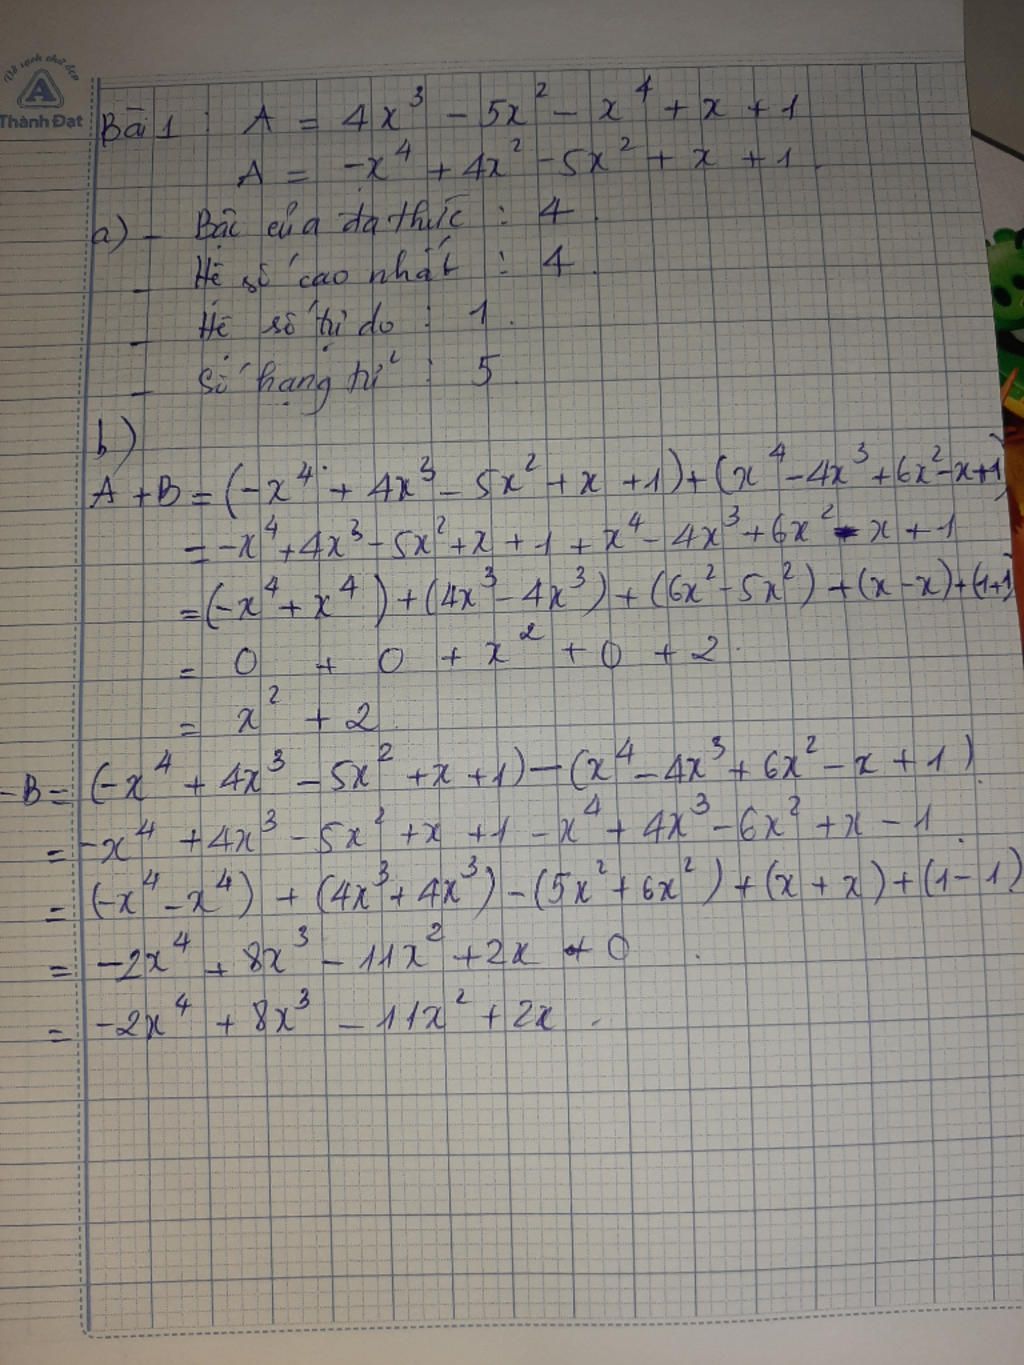 Vở sạch chữ đẹp
A
Thành Đạt
Bài 1 : A = 4x³ - 5x² - x⁴ + x + 1
A = -x⁴ + 4x² - 5x² + x + 1.
a) - Bậc của đa thức : 4.
- Hệ số cao nhất : 4.
- Hệ số tự do : 1.
- Số hạng tử : 5.
b)
A + B = (-x⁴ + 4x³ - 5x² + x + 1) + (x⁴ - 4x³ + 6x² - x + 1)
= -x⁴ + 4x³ - 5x² + x + 1 + x⁴ - 4x³ + 6x² - x + 1
= (-x⁴ + x⁴) + (4x³ - 4x³) + (6x² - 5x²) + (x - x) + (1+1)
= 0 + 0 + x² + 0 + 2.
= x² + 2.
- B = (-x⁴ + 4x³ - 5x² + x + 1) - (x⁴ - 4x³ + 6x² - x + 1).
= -x⁴ + 4x³ - 5x² + x + 1 - x⁴ + 4x³ - 6x² + x - 1.
= (-x⁴ - x⁴) + (4x³ + 4x³) - (5x² + 6x²) + (x + x) + (1 - 1)
= -2x⁴ + 8x³ - 11x² + 2x + 0.
= -2x⁴ + 8x³ - 11x² + 2x.